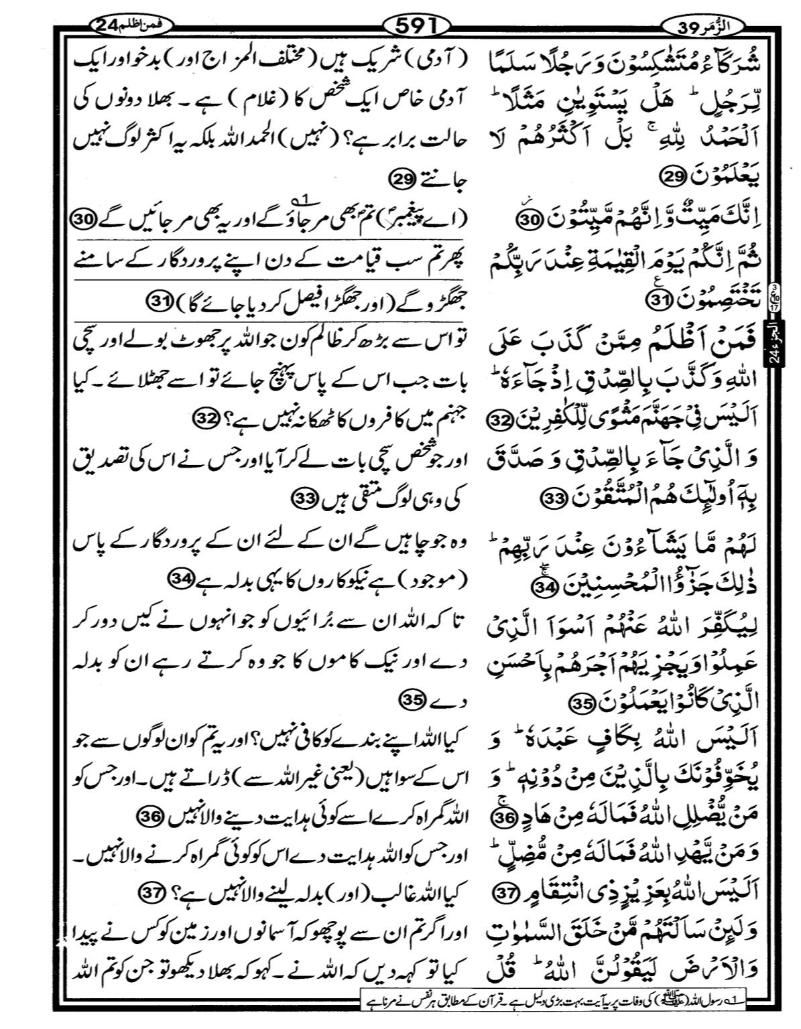 الزُّمَر 39
591
فمن اظلم 24
شُرَكَآءُ مُتَشٰكِسُوْنَ وَرَجُلًا سَلَمًا
لِّرَجُلٍ ؕ هَلْ يَسْتَوِيٰنِ مَثَلًا ؕ
اَلْحَمْدُ لِلّٰهِ ۚ بَلْ اَكْثَرُهُمْ لَا
يَعْلَمُوْنَ 29
اِنَّكَ مَيِّتٌ وَّاِنَّهُمْ مَّيِّتُوْنَ 30
ثُمَّ اِنَّكُمْ يَوْمَ الْقِيٰمَةِ عِنْدَ رَبِّكُمْ
تَخْتَصِمُوْنَ 31
فَمَنْ اَظْلَمُ مِمَّنْ كَذَبَ عَلَى
اللّٰهِ وَكَذَّبَ بِالصِّدْقِ اِذْ جَآءَهٗ ؕ
اَلَيْسَ فِيْ جَهَنَّمَ مَثْوًى لِّلْكٰفِرِيْنَ 32
وَ الَّذِيْ جَآءَ بِالصِّدْقِ وَ صَدَّقَ
بِهٖۤ اُولٰٓئِكَ هُمُ الْمُتَّقُوْنَ 33
لَهُمْ مَّا يَشَآءُوْنَ عِنْدَ رَبِّهِمْ ؕ
ذٰلِكَ جَزٰٓؤُا الْمُحْسِنِيْنَ 34
لِيُكَفِّرَ اللّٰهُ عَنْهُمْ اَسْوَاَ الَّذِيْ
عَمِلُوْا وَيَجْزِيَهُمْ اَجْرَهُمْ بِاَحْسَنِ
الَّذِيْ كَانُوْا يَعْمَلُوْنَ 35
اَلَيْسَ اللّٰهُ بِكَافٍ عَبْدَهٗ ؕ وَ
يُخَوِّفُوْنَكَ بِالَّذِيْنَ مِنْ دُوْنِهٖ ؕ وَ
مَنْ يُّضْلِلِ اللّٰهُ فَمَا لَهٗ مِنْ هَادٍ 36
وَمَنْ يَّهْدِ اللّٰهُ فَمَا لَهٗ مِنْ مُّضِلٍّ ؕ
اَلَيْسَ اللّٰهُ بِعَزِيْزٍ ذِي انْتِقَامٍ 37
وَلَئِنْ سَاَلْتَهُمْ مَّنْ خَلَقَ السَّمٰوٰتِ
وَالْاَرْضَ لَيَقُوْلُنَّ اللّٰهُ ؕ قُلْ
(آدمی) شریک ہیں (مختلف المزاج اور) بدخو اور ایک
آدمی خاص ایک شخص کا (غلام) ہے ۔ بھلا دونوں کی
حالت برابر ہے؟ (نہیں) الحمد اللہ بلکہ یہ اکثر لوگ نہیں
جانتے 29
(اے پیغمبرؐ) تم بھی مر جاؤ گے اور یہ بھی مر جائیں گے 30
پھر تم سب قیامت کے دن اپنے پروردگار کے سامنے
جھگڑو گے (اور جھگڑا فیصل کر دیا جائے گا) 31
تو اس سے بڑھ کر ظالم کون جو اللہ پر جھوٹ بولے اور سچی
بات جب اس کے پاس پہنچ جائے تو اسے جھٹلائے ۔ کیا
جہنم میں کافروں کا ٹھکانہ نہیں ہے؟ 32
اور جو شخص سچی بات لے کر آیا اور جس نے اس کی تصدیق
کی وہی لوگ متقی ہیں 33
وہ جو چاہیں گے ان کے لئے ان کے پروردگار کے پاس
(موجود) ہے نیکوکاروں کا یہی بدلہ ہے 34
تا کہ اللہ ان سے بُرائیوں کو جو انہوں نے کیں دور کر
دے اور نیک کاموں کا جو وہ کرتے رہے ان کو بدلہ
دے 35
کیا اللہ اپنے بندے کو کافی نہیں؟ اور یہ تم کو ان لوگوں سے جو
اس کے سوا ہیں (یعنی غیر اللہ سے) ڈراتے ہیں ۔ اور جس کو
اللہ گمراہ کرے اسے کوئی ہدایت دینے والا نہیں 36
اور جس کو اللہ ہدایت دے اس کو کوئی گمراہ کرنے والا نہیں ۔
کیا اللہ غالب (اور) بدلہ لینے والا نہیں ہے؟ 37
اور اگر تم ان سے پوچھو کہ آسمانوں اور زمین کو کس نے پیدا
کیا تو کہہ دیں کہ اللہ نے ۔ کہو کہ بھلا دیکھو تو جن کو تم اللہ
الجزء 24
1 رسول اللہ (ﷺ) کی وفات پر یہ آیت بہت بڑی دلیل ہے ۔ قرآن کے مطابق ہر نفس نے مرنا ہے